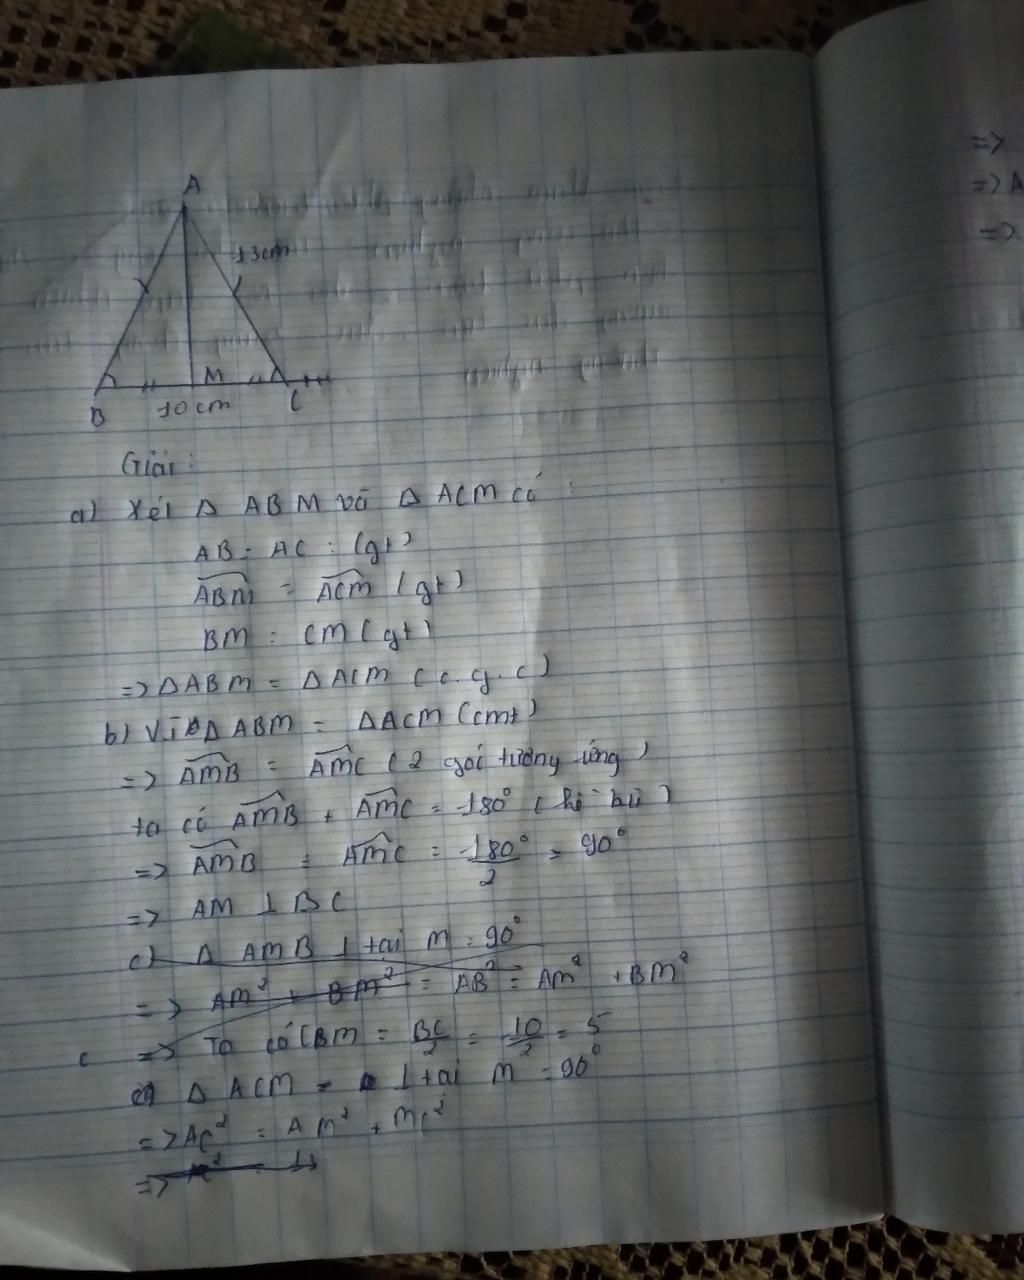 A
13cm
M
B 10cm C
Giải:
a) Xét Δ ABM và Δ ACM có:
AB = AC : (gt)
ABM = ACM (gt)
BM = CM (gt)
=> ΔABM = ΔACM (c.g.c)
b) Vì Δ ABM = ΔACM (cmt)
=> AMB = AMC (2 gói tương ứng)
ta có AMB + AMC = 180° (kề bù)
=> AMB = AMC = 180°/2 = 90°
=> AM ⊥ BC
c) Δ AMB ⊥ tại M = 90°
=> AM² + BM² = AB² = AM² + BM²
c => Ta có BM = BC/2 = 10/2 = 5
Δ ACM ⊥ tại M = 90°
=> AC² = AM² + MC²
=>
=>
=> A
=>